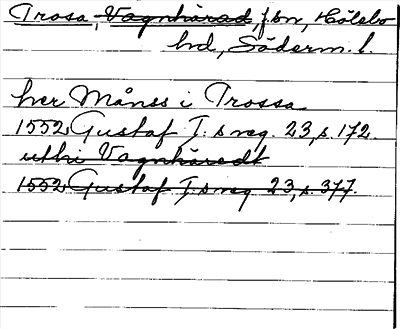 Trosa, Vagnhärad, f.sn, Hölebo
hd, Söderm. l.
her Månss i Trossa
1552 Gustaf I:s reg. 23, s. 172
uthi Vagnhäredt
1552 Gustaf I:s reg 23, s. 377.